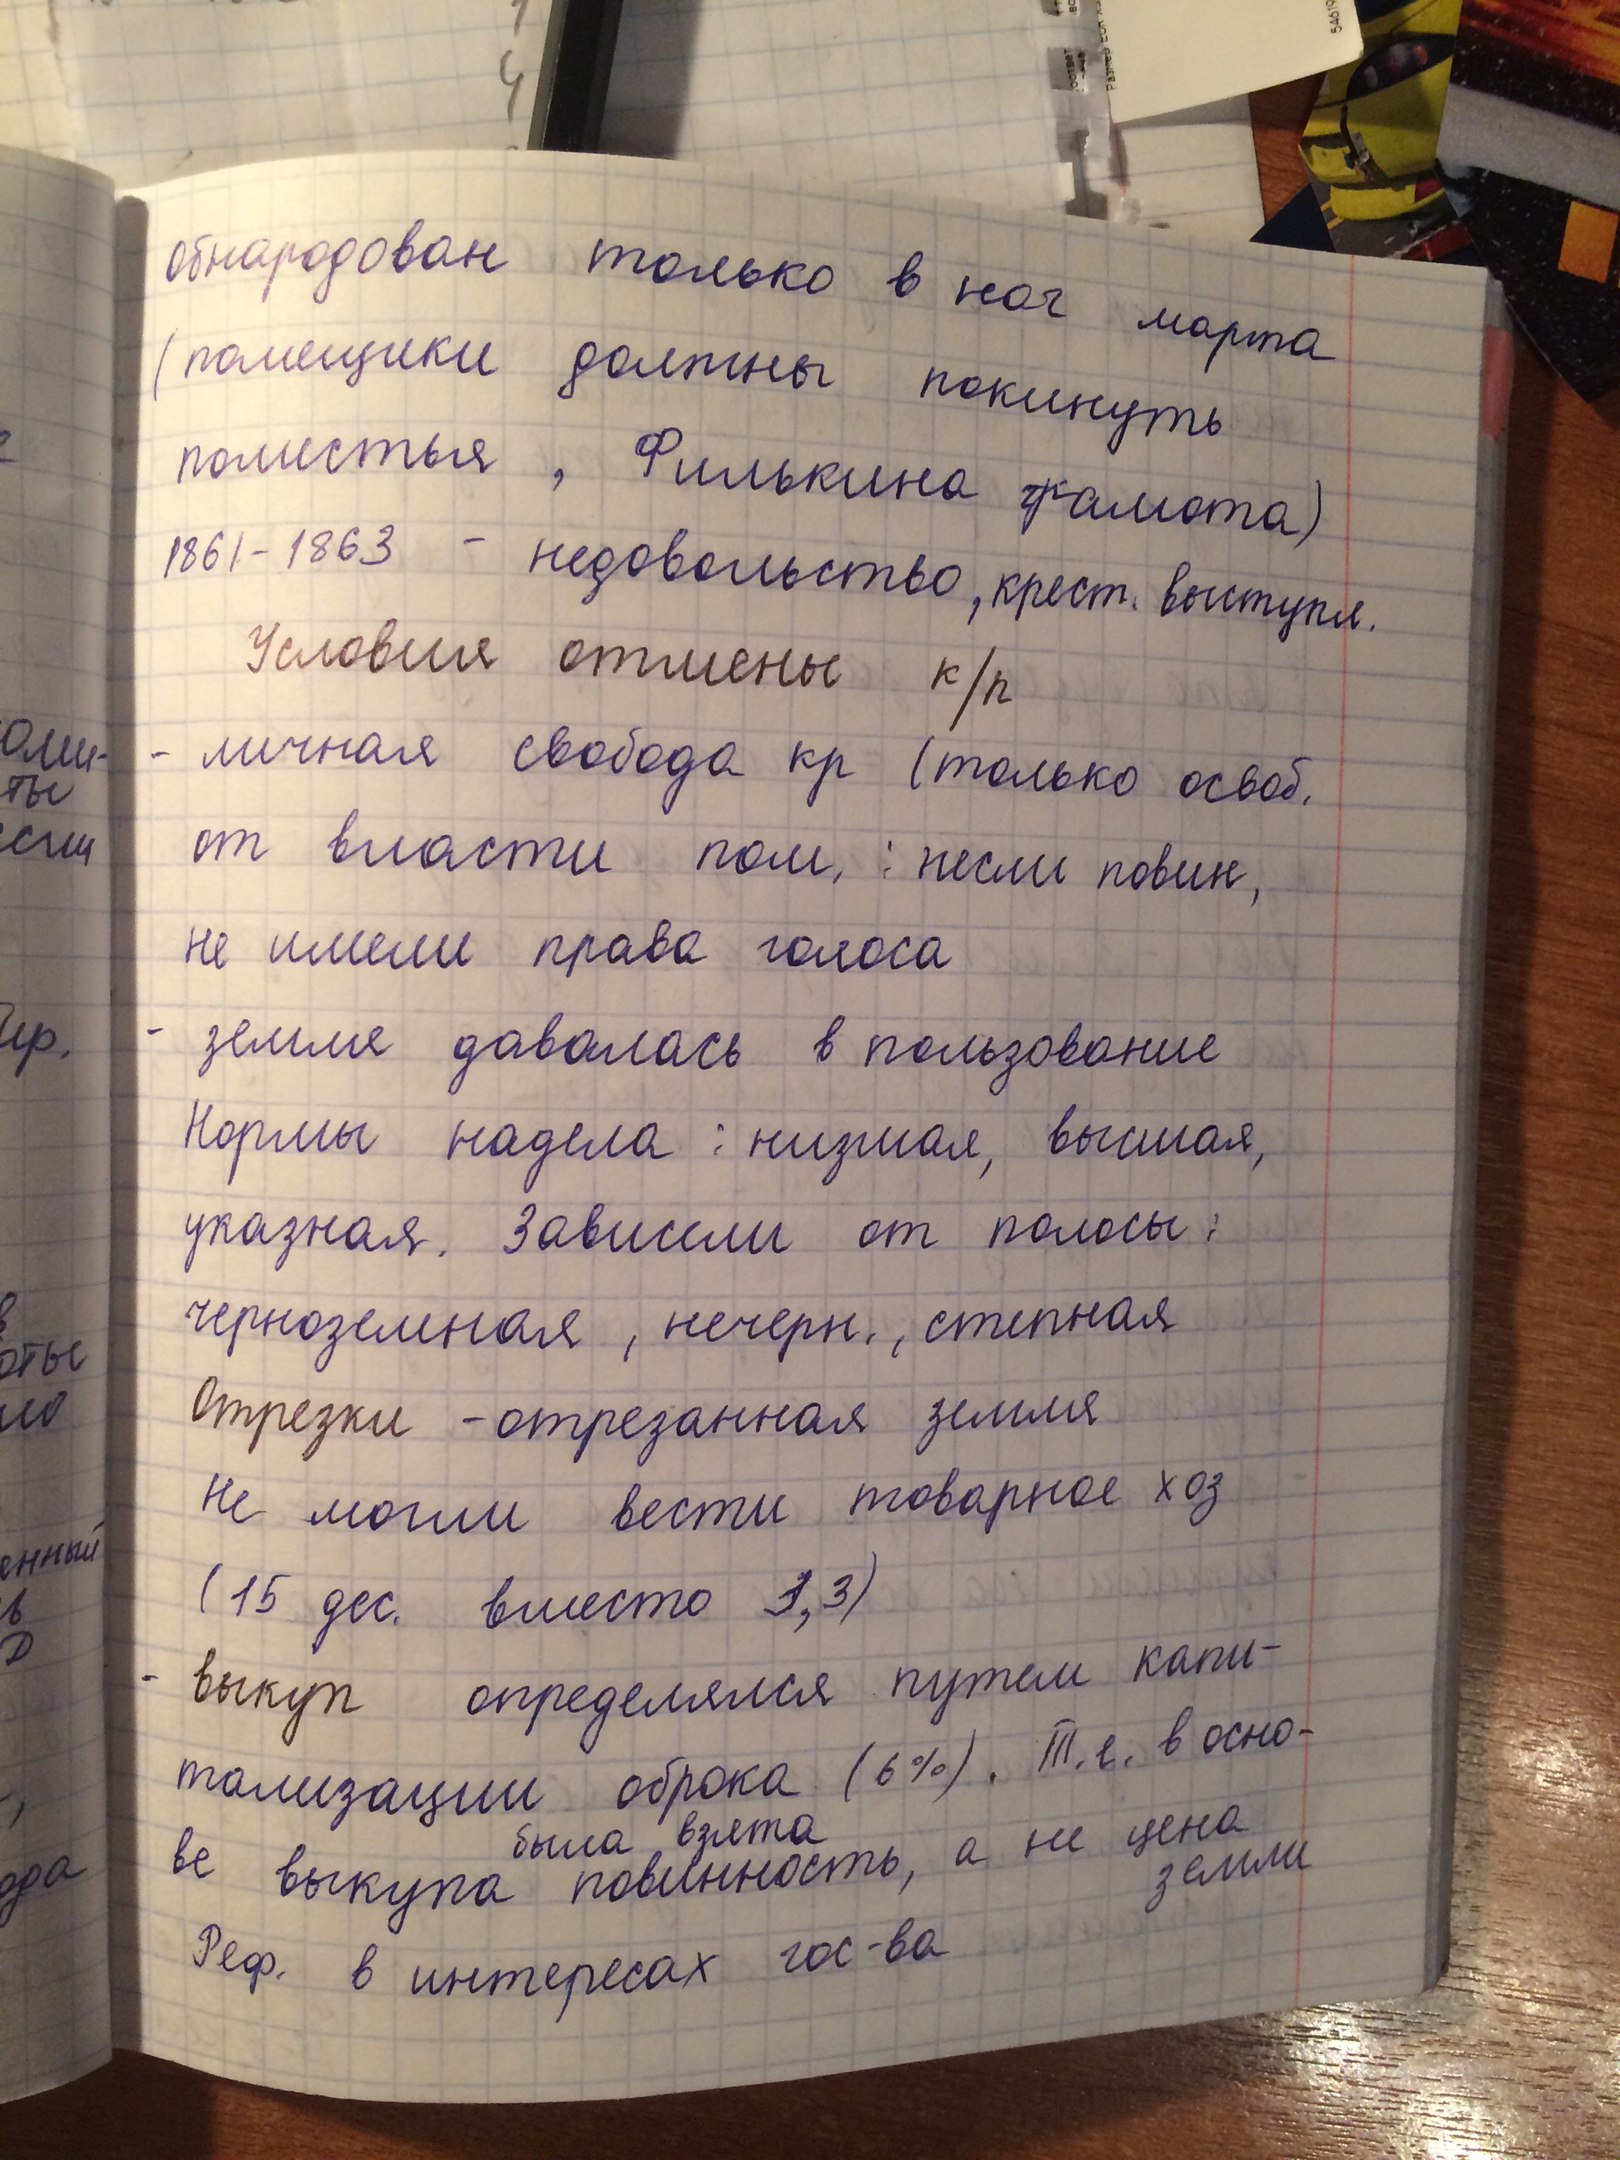 обнародован только в нач марта
(помещики должны покинуть
поместья, Филькина грамота)
1861-1863 - недовольство, крест. выступл.
Условия отмены к/п
- личная свобода кр (только освоб.
от власти пом. : несли повин,
не имели права голоса
- земля давалась в пользование
Нормы надела : низшая, высшая,
указная. Зависели от полосы:
черноземная, нечерн., степная
Отрезки - отрезанная земля
Не могли вести товарное хоз
(15 дес. вместо 3,3)
- выкуп определялся путем капи-
тализации оброка (6%). Т.е. в осно-
была взята
ве выкупа повинность, а не цена
земли
Реф. в интересах гос-ва